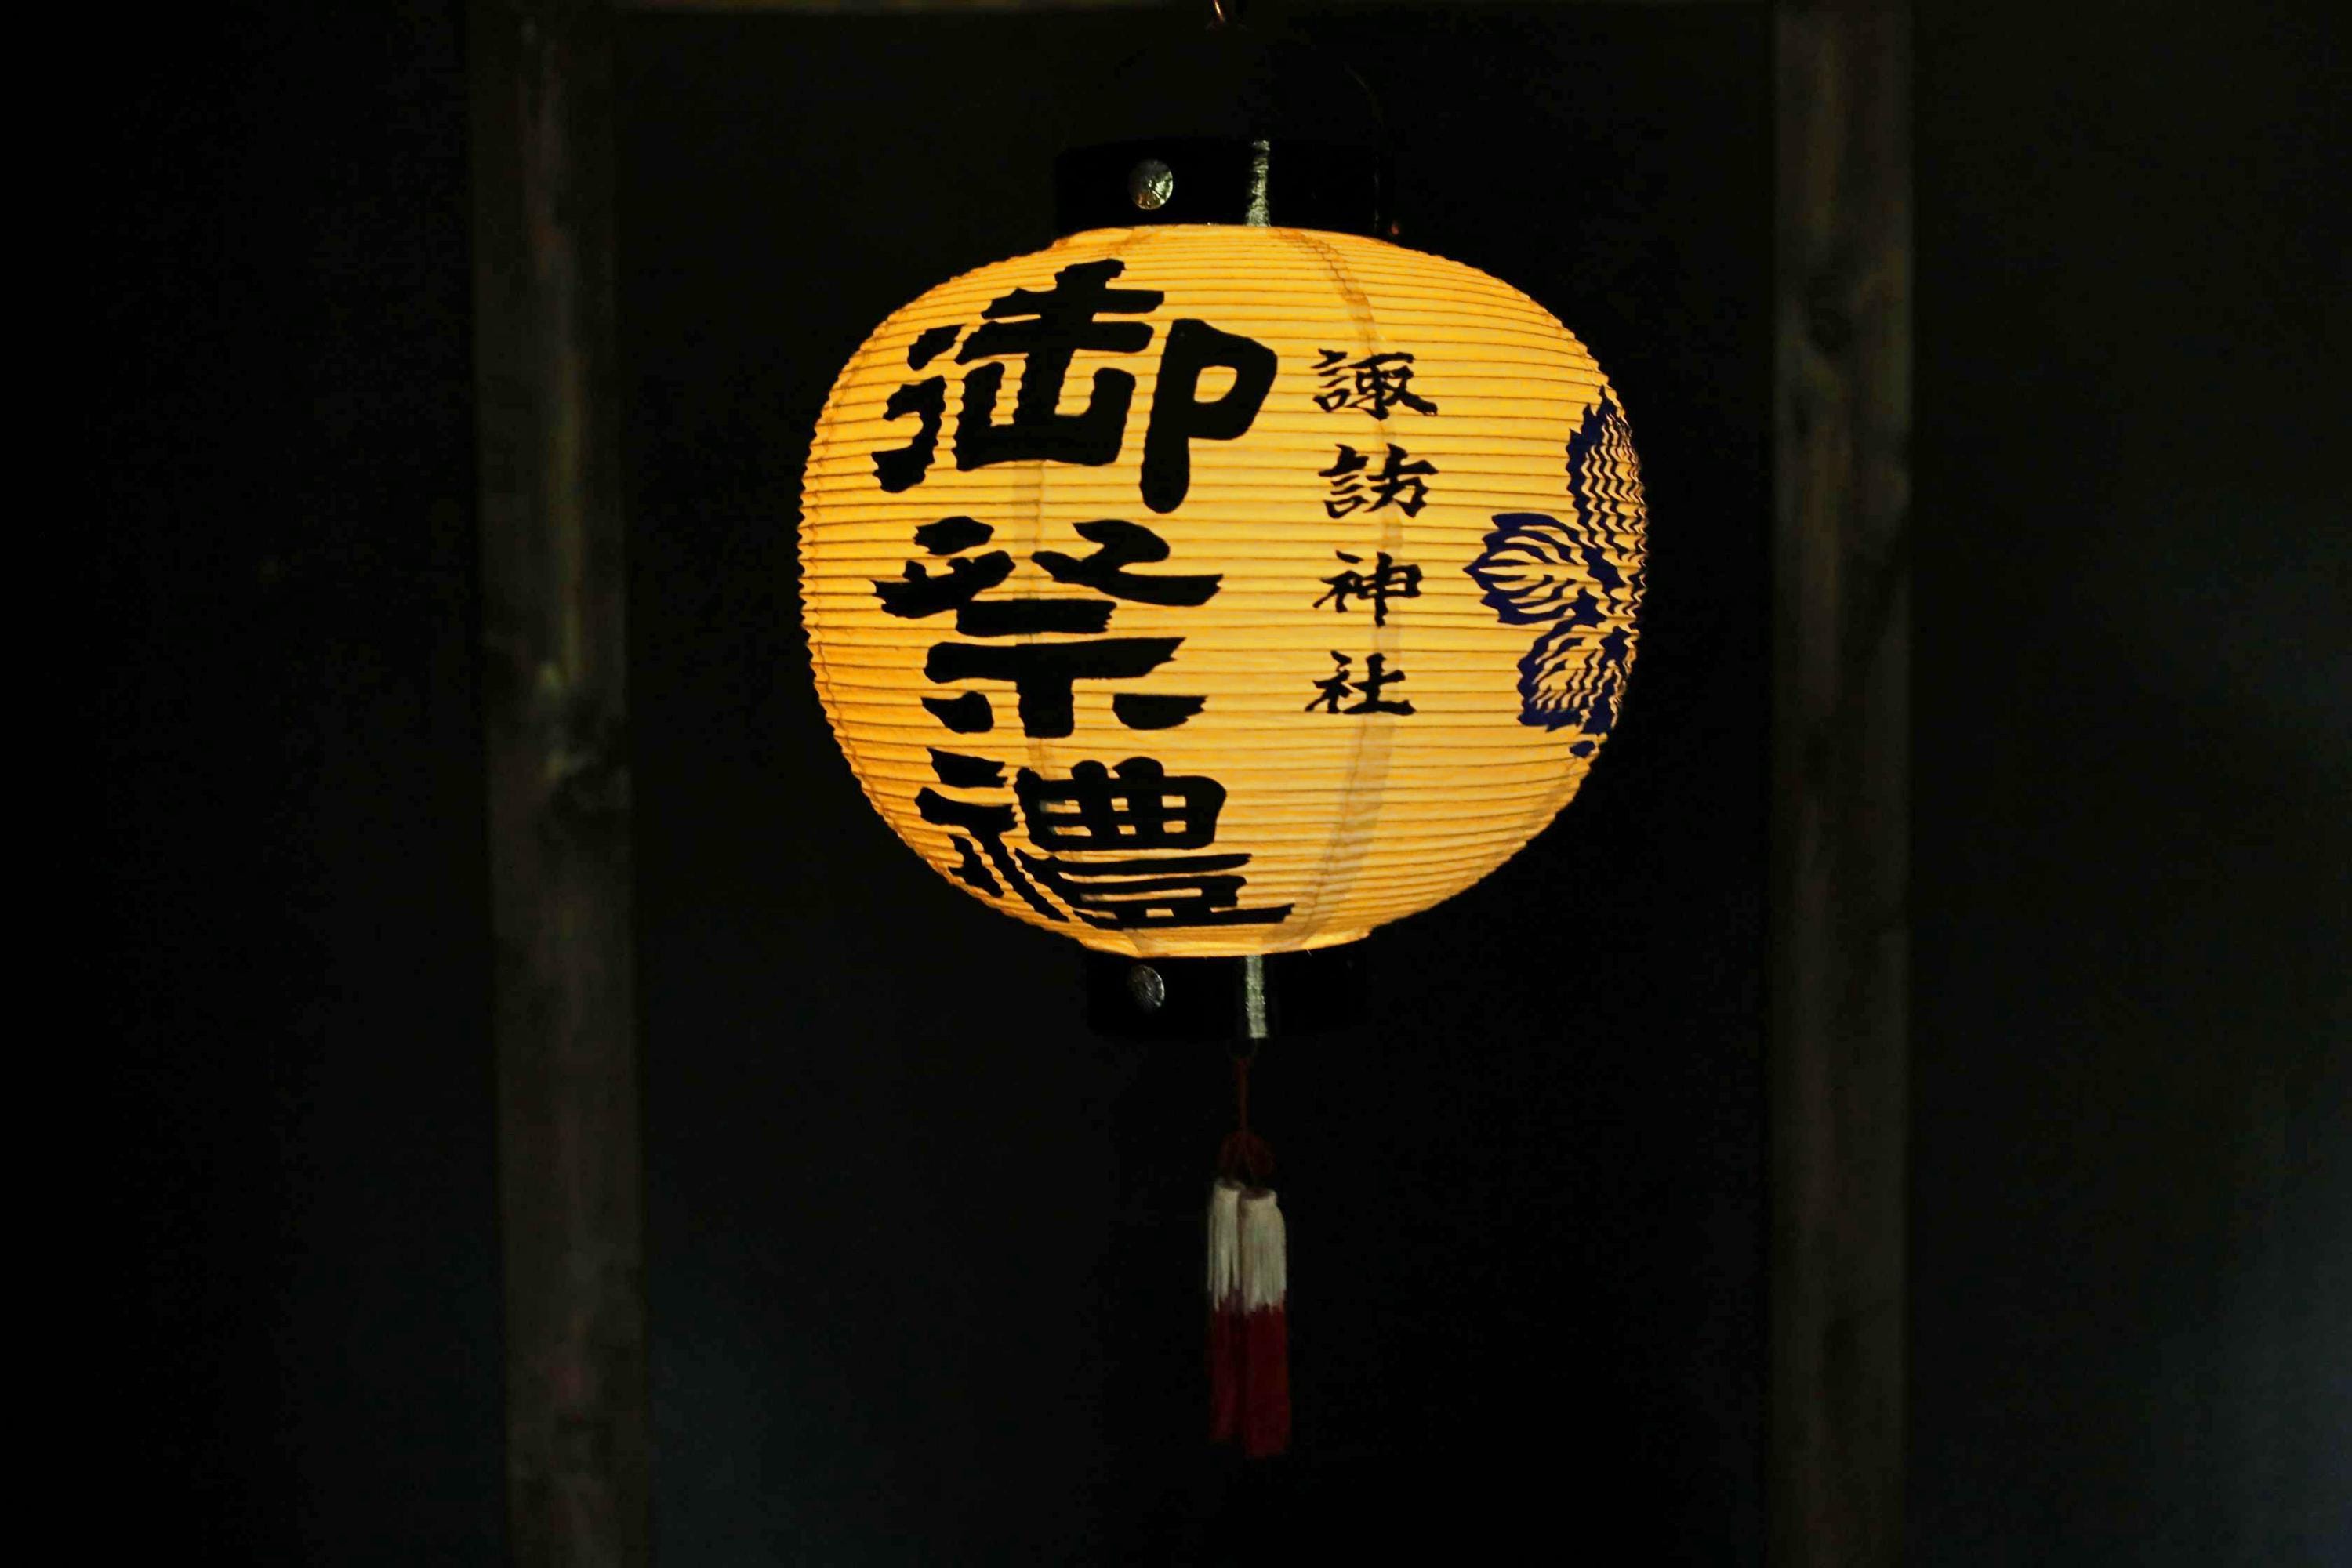 諏訪神社
御祭禮